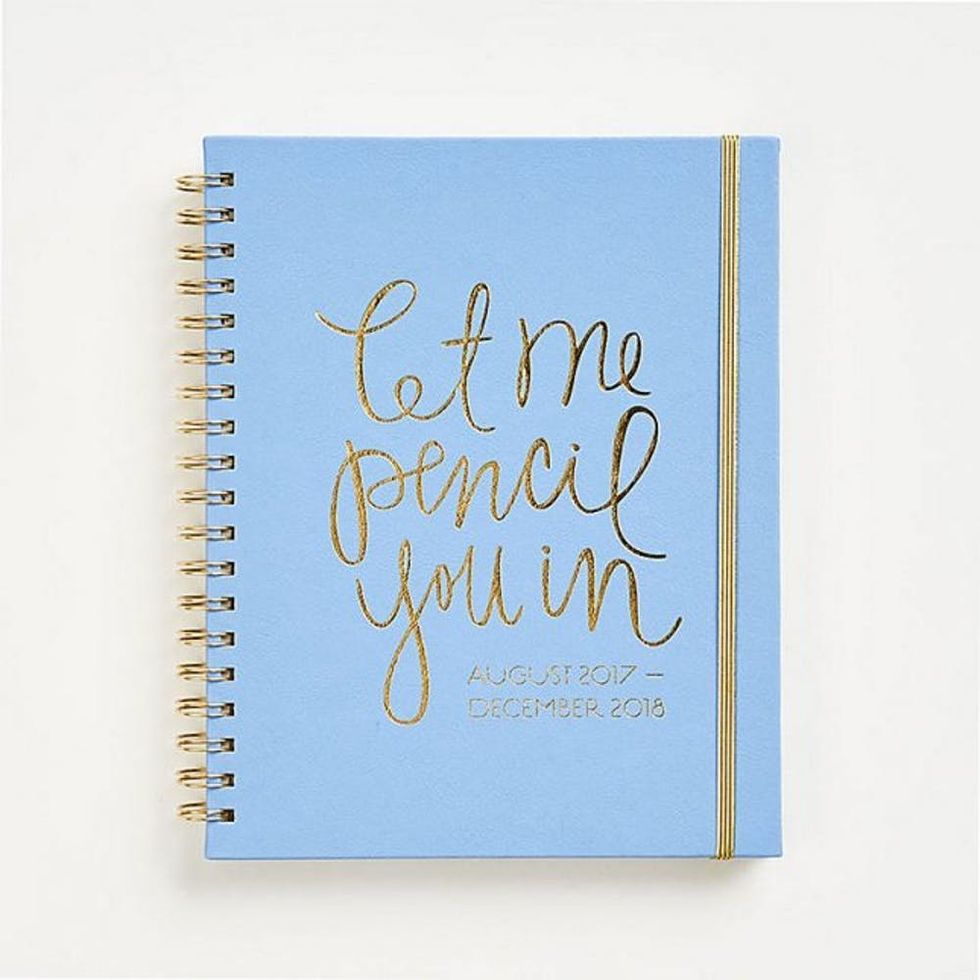 let me
pencil
you in
AUGUST 2017 –
DECEMBER 2018